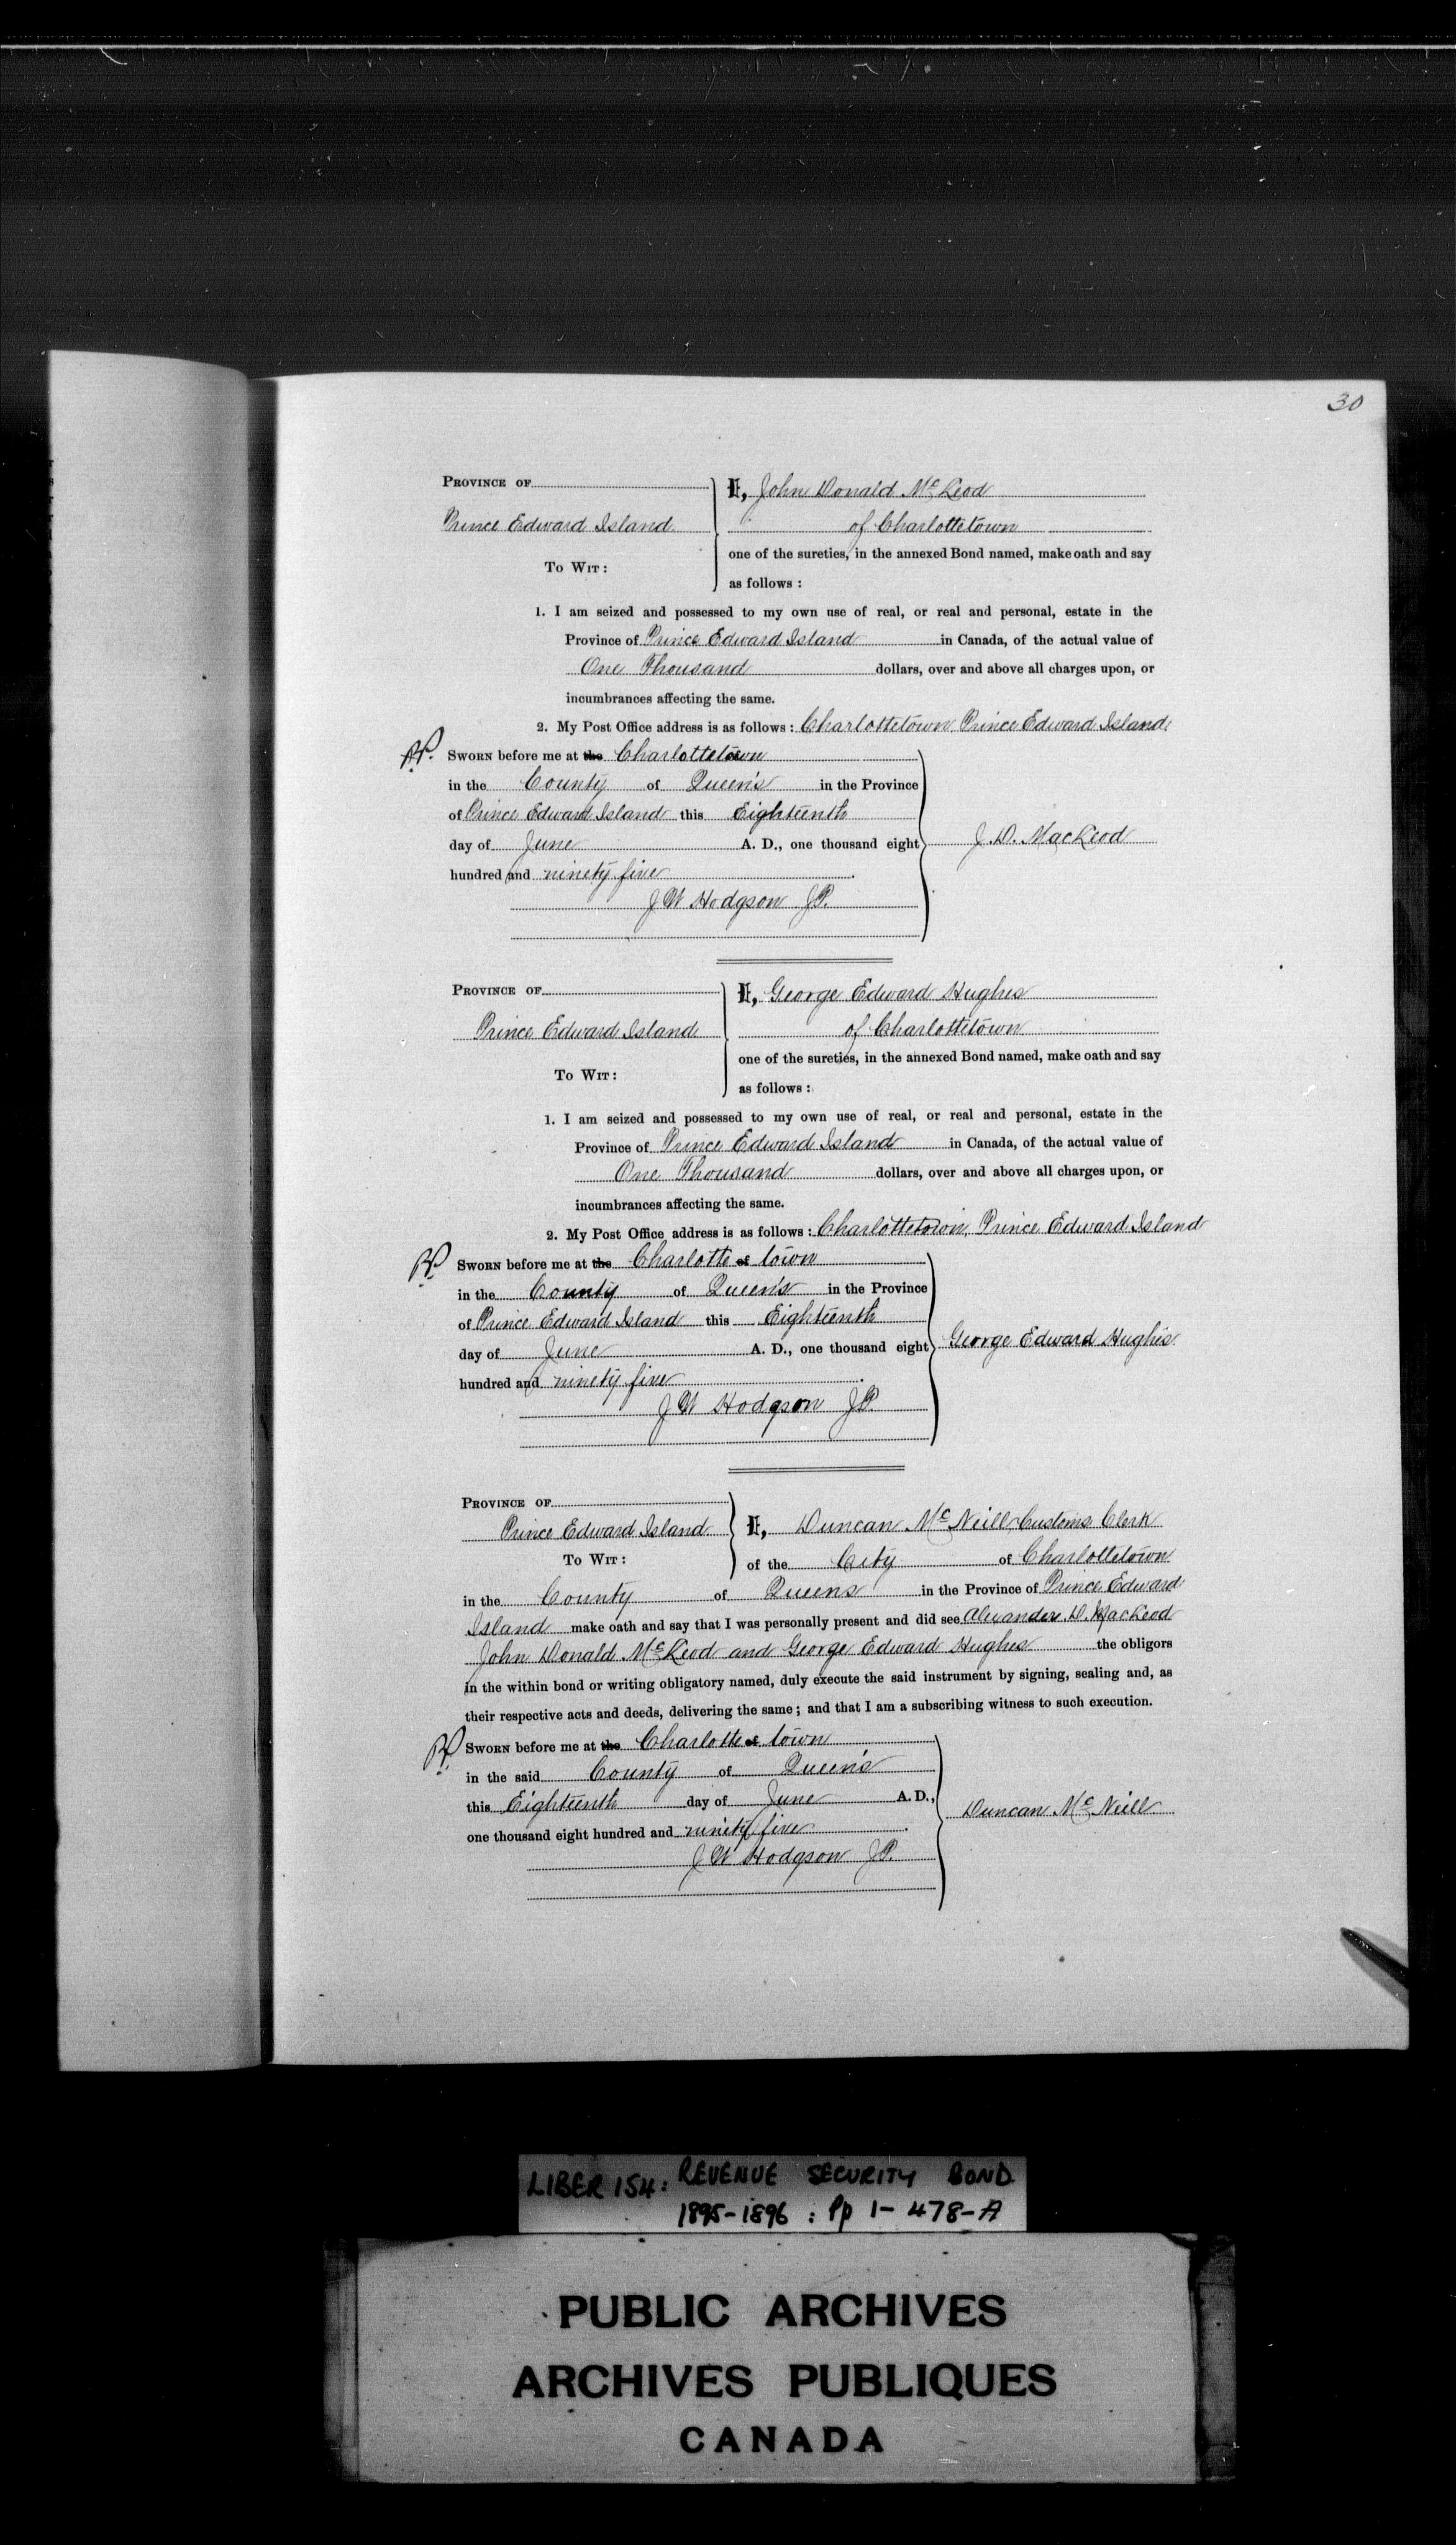 30
PROVINCE OF
Prince Edward Island
TO WIT:
I, John Donald McLeod
of Charlottetown
one of the sureties, in the annexed Bond named, make oath and say
as follows:
1. I am seized and possessed to my own use of real, or real and personal, estate in the
Province of Prince Edward Island in Canada, of the actual value of
One Thousand dollars, over and above all charges upon, or
incumbrances affecting the same.
2. My Post Office address is as follows: Charlottetown Prince Edward Island
SWORN before me at the Charlottetown
in the County of Queen's in the Province
of Prince Edward Island this Eighteenth
day of June A. D., one thousand eight
hundred and ninety five.
J W Hodgson JP.
J. D. MacLeod
PROVINCE OF
Prince Edward Island
TO WIT:
I, George Edward Hughes
of Charlottetown
one of the sureties, in the annexed Bond named, make oath and say
as follows:
1. I am seized and possessed to my own use of real, or real and personal, estate in the
Province of Prince Edward Island in Canada, of the actual value of
One Thousand dollars, over and above all charges upon, or
incumbrances affecting the same.
2. My Post Office address is as follows: Charlottetown, Prince Edward Island
SWORN before me at the Charlotte of town
in the County of Queen's in the Province
of Prince Edward Island this Eighteenth
day of June A. D., one thousand eight
hundred and ninety five.
J W Hodgson JP.
George Edward Hughes
PROVINCE OF
Prince Edward Island
TO WIT:
I, Duncan McNeill, Customs Clerk
of the City of Charlottetown
in the County of Queens in the Province of Prince Edward
Island make oath and say that I was personally present and did see Alexander D. MacLeod
John Donald McLeod and George Edward Hughes the obligors
in the within bond or writing obligatory named, duly execute the said instrument by signing, sealing and, as
their respective acts and deeds, delivering the same; and that I am a subscribing witness to such execution.
SWORN before me at the Charlotte of town
in the said County of Queen's
this Eighteenth day of June A. D.,
one thousand eight hundred and ninety five.
J W Hodgson JP.
Duncan McNeill
LIBER 154: REVENUE SECURITY BOND
1895-1896: Pp 1-478-A
PUBLIC ARCHIVES
ARCHIVES PUBLIQUES
CANADA